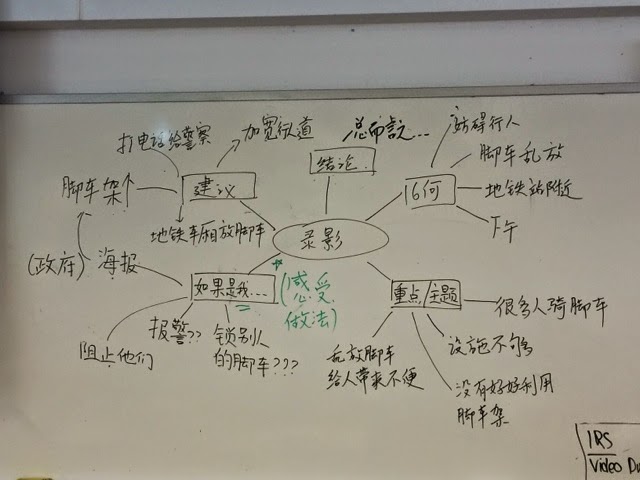 打电话给警察
加宽行道
总而言之...
妨碍行人
脚车架↑
建议
结论...
6何
脚车乱放
地铁站附近
下午
地铁车厢放脚车
录影
(政府)
海报
如果是我....
(感受
做法)
重点/主题
很多人骑脚车
报警??
阻止他们
锁别人
的脚车???
乱放脚车
给人带来不便
设施不够
没有好好利用
脚车架
IRS
Video Du